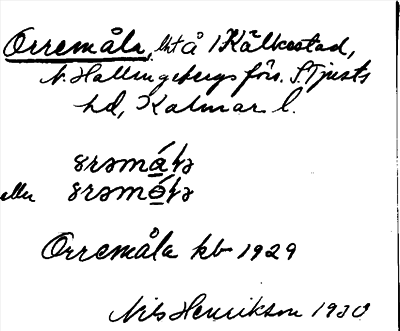 Orremåla, lht å 1 Källestad,
N. Hallingebergs förs. S. Tjusts
hd, Kalmar l.
eller
Orremåla kb 1929
Nils Henrikson 1930